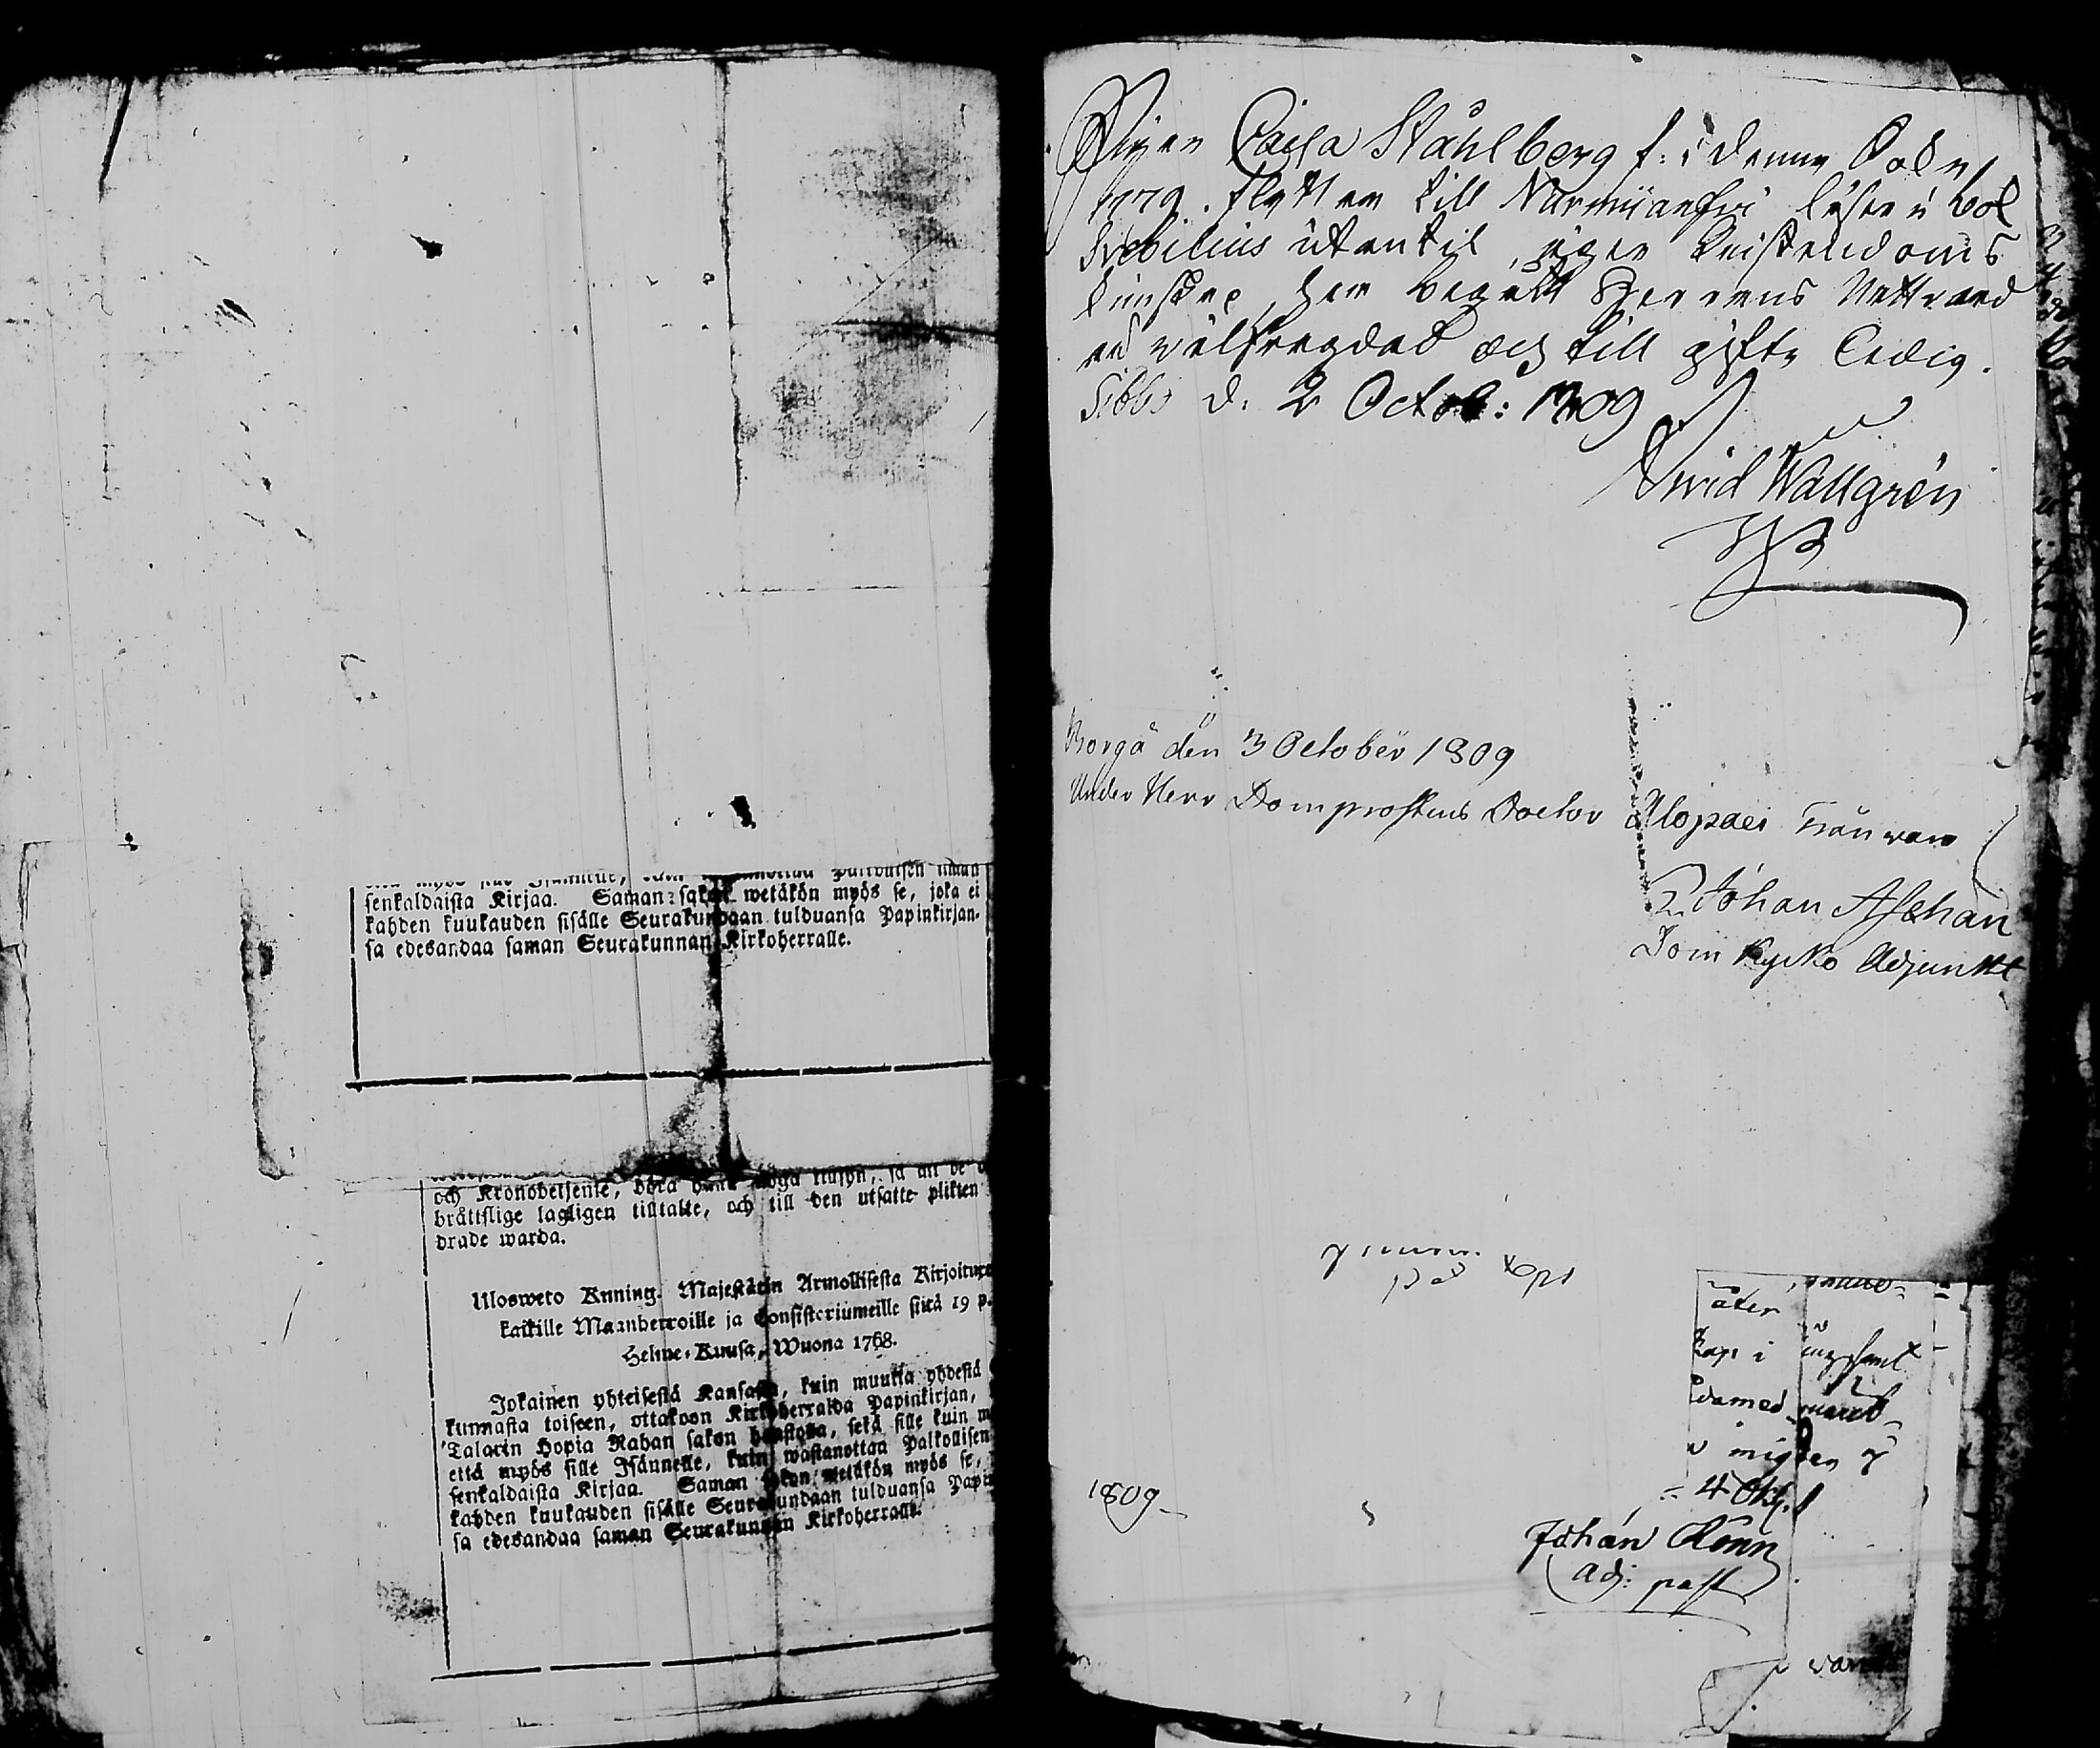 senkaldaista Kirjaa. Saman sakon wetäkön myös se, joka ei
kahden kuukauden sisälle Seurakundaan tulduansa Papinkirjan-
sa edesandaa saman Seurakunnan Kirkoherralle.
och Kronobetjente, böra
bråttslige lagligen tilltalte, och till den utsatte plikten
drade warda.
Ulosweto Kuning. Majestätin Armollisesta Kirjoituxe
kaikille Maanherroille ja Consistoriumeille siitä 19 p.
Helme-Kuusa, Wuona 1768.
Jokainen yhteisestä Kansasta, kuin muutta yhdestä
kunnasta toiseen, ottakoon Kirkoherralda Papinkirjan,
Talarin Hopia Rahan sakon haastolla, sekä sille kuin m
että myös sille Isännelle, kuin wastanottaa Palkollisen
senkaldaista Kirjaa. Saman sakon wetäkön myös se,
kahden kuukauden sisälle Seurakundaan tulduansa Papin
sa edesandaa saman Seurakunnan Kirkoherralle.
Pigan Caisa Ståhlberg f: i denna Sokn
1779. flyttar till Nurmijärfvi läser i bok
Svebilius utantil, äger Christendoms
kunskap, har begått Herrens Nattvard
är välfregdad och till gifte ledig.
Sibbo d. 2 Octob: 1809
Arvid Wallgrén
Borgå den 3 October 1809
Under Herr Domprostens Doctor Alopaei frånvaro
Johan Aschan
Domkyrko Adjunkt
1809
4 Oct.
Johan Konn
Adj: past